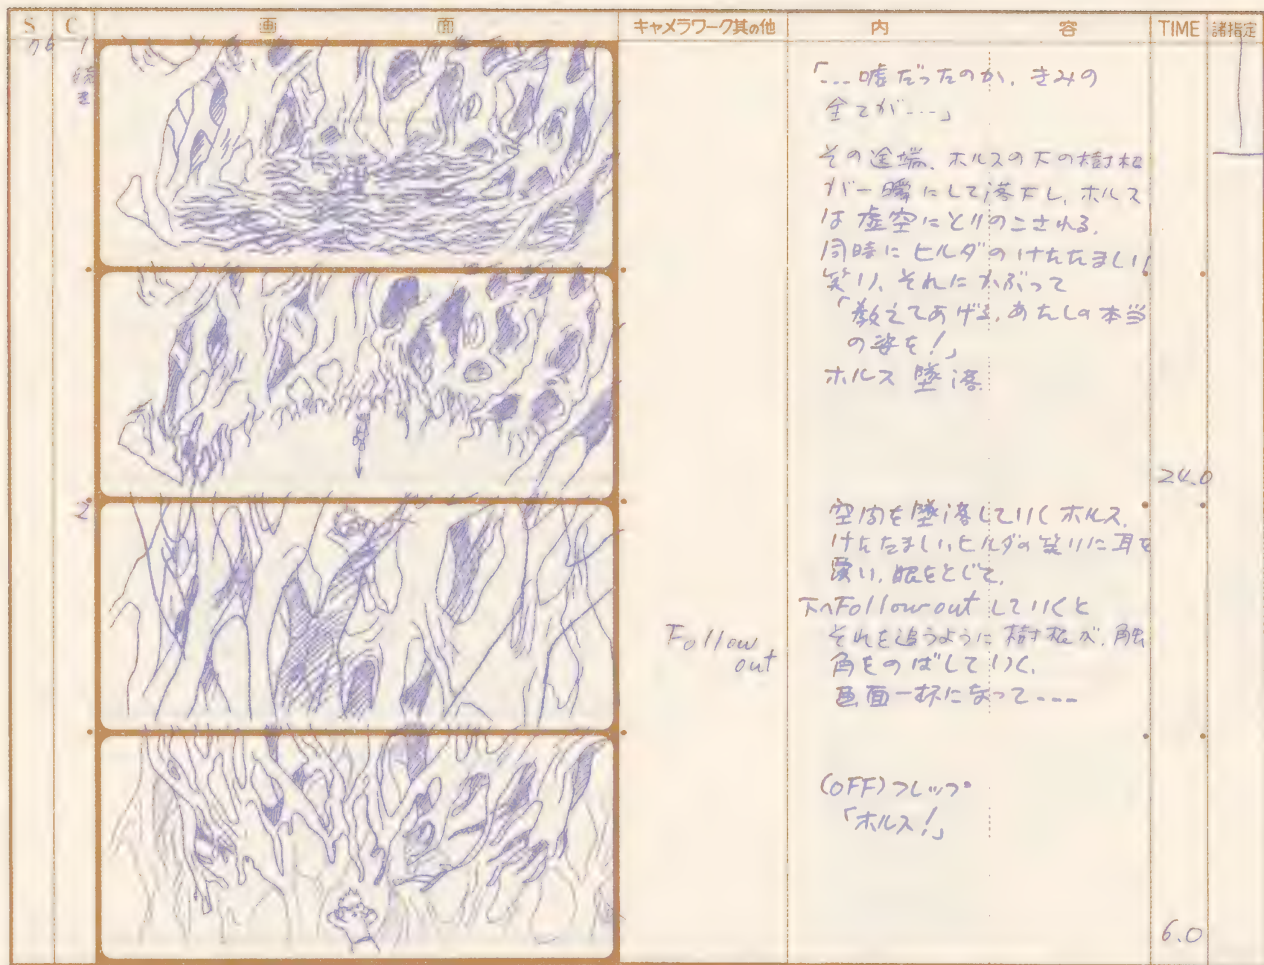 S C 画 面 キャメラワーク其の他 内 容 TIME 諸指定
76 1
「…嘘だったのか、きみの
全てが----」
その途端、ホルスの下の樹根
が一瞬にして落下し、ホルス
は虚空にとりのこされる。
同時にヒルダのけたたましい
笑い、それにかぶって
「教えてあげる、あたしの本当
の姿を!」
ホルス墜落
24.0
2
空間を墜落していくホルス。
けたたましいヒルダの笑いに耳を
覆い、眼をとじて。
Follow
out
下へFollow outしていくと
それを追うように樹根が、触
角をのばしていく。
画面一杯になって----
(OFF)フレップ
「ホルス!」
6.0